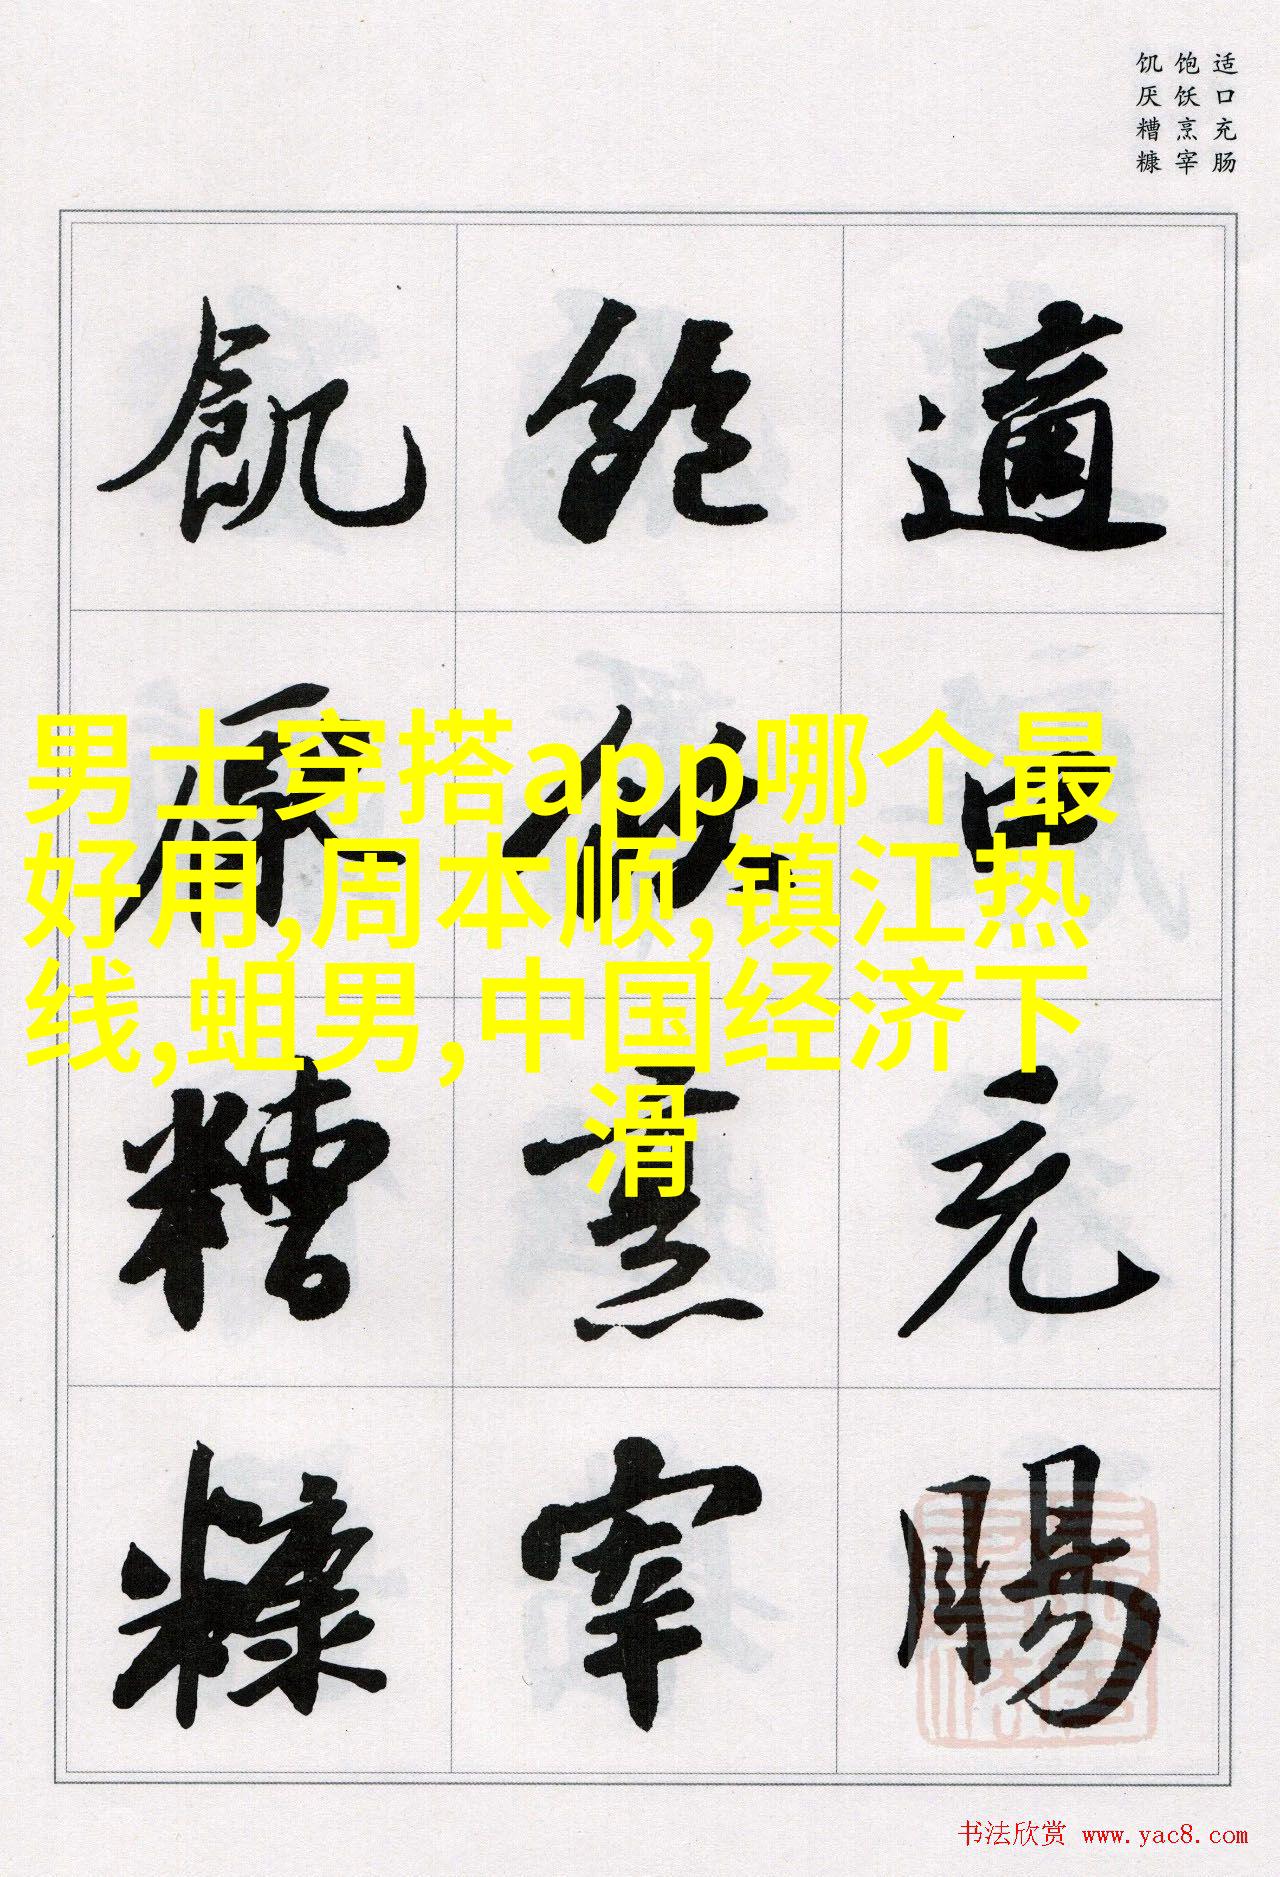 适口充肠
饱饫烹宰
饥厌糟糠
適口充腸
飽飫烹宰
飢厭糟糠
男士穿搭app哪个最
好用,周本顺,镇江热
线,蛆男,中国经济下
滑
书法欣赏 www.yac8.com